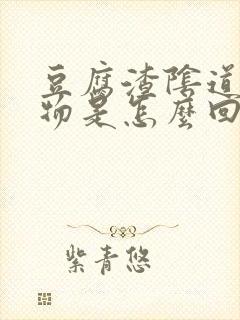 豆腐渣陰道
物是怎麼回
紫青悠